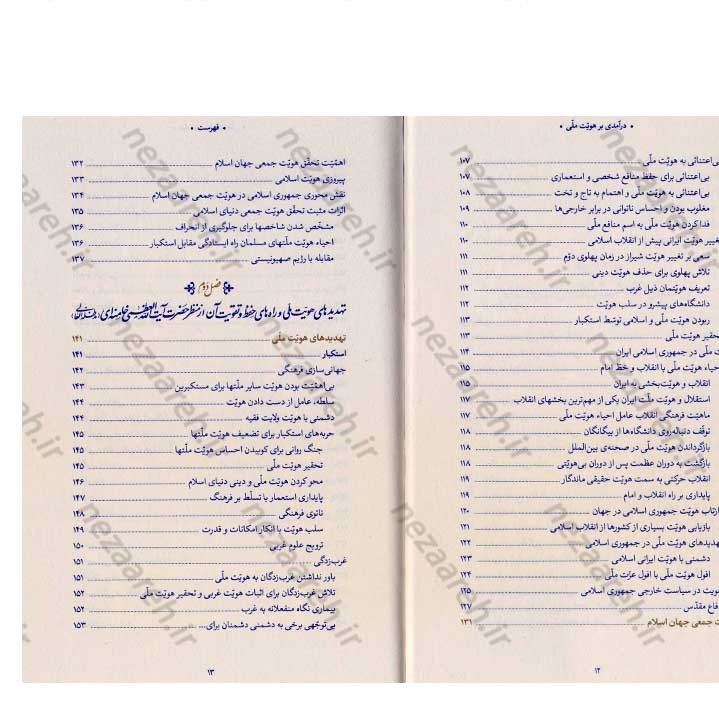 • درآمدی بر هویّت ملّی •
بی‌اعتنائی به هویّت ملّی ۱۰۷
بی‌اعتنائی برای حفظ منافع شخصی و استعماری ۱۰۷
بی‌اعتنائی به هویّت ملّی و اهتمام به تاج و تخت ۱۰۸
مغلوب بودن و احساس ناتوانی در برابر خارجی‌ها ۱۰۹
فدا کردن هویّت ملّی به اسم منافع ملّی ۱۱۰
تغییر هویّت ایرانی پیش از انقلاب اسلامی ۱۱۰
سعی بر تغییر هویّت شیراز در زمان پهلوی دوّم ۱۱۱
تلاش پهلوی برای حذف هویّت دینی ۱۱۱
تعریف هویّتمان ذیل غرب ۱۱۲
دانشگاه‌های پیشرو در سلب هویّت ۱۱۲
ربودن هویّت ملّی و اسلامی توسّط استکبار ۱۱۳
تحقیر هویّت ملّی ۱۱۳
ملّی در جمهوری اسلامی ایران ۱۱۴
احیاء هویّت ملّی با انقلاب و خطّ امام ۱۱۵
انقلاب و هویّت‌بخشی به ایران ۱۱۵
استقلال و هویّت ملّت ایران یکی از مهم‌ترین بخشهای انقلاب ۱۱۷
ماهیّت فرهنگی انقلاب عامل احیاء هویّت ملّی ۱۱۷
توقّف دنباله‌روی دانشگاه‌ها از بیگانگان ۱۱۸
بازگرداندن هویّت ملّی در صحنه‌ی بین‌الملل ۱۱۸
بازگشت به دوران عظمت پس از دوران بی‌هویّتی ۱۱۸
انقلاب حرکتی به سمت هویّت حقیقی ماندگار ۱۱۹
پایداری بر راه انقلاب و امام ۱۱۹
بازتاب هویّت جمهوری اسلامی در جهان ۱۲۰
بازیابی هویّت بسیاری از کشورها از انقلاب اسلامی ۱۲۱
تهدیدهای هویّت ملّی در جمهوری اسلامی ۱۲۳
دشمنی با هویّت ایرانی اسلامی ۱۲۳
افول هویّت ملّی با افول عزّت ملّی ۱۲۴
هویّت در سیاست خارجی جمهوری اسلامی ۱۲۵
دفاع مقدّس ۱۲۷
جمعی جهان اسلام ۱۳۱
۱۲
• فهرست •
اهمّیّت تحقّق هویّت جمعی جهان اسلام ۱۳۲
پیروزی هویّت اسلامی ۱۳۳
نقش محوری جمهوری اسلامی در هویّت جمعی جهان اسلام ۱۳۴
اثرات مثبت تحقّق هویّت جمعی دنیای اسلامی ۱۳۵
مشخّص شدن شاخصها برای جلوگیری از انحراف ۱۳۶
احیاء هویّت ملّتهای مسلمان راه ایستادگی مقابل استکبار ۱۳۶
مقابله با رژیم صهیونیستی ۱۳۷
فصل دوم
تهدیدهای هویّت ملی و راه‌های حفظ و تقویت آن از منظر حضرت آیت‌الله العظمی خامنه‌ای
تهدیدهای هویّت ملّی ۱۴۱
استکبار ۱۴۱
جهانی‌سازی فرهنگی ۱۴۲
بی‌اهمّیّت بودن هویّت سایر ملّتها برای مستکبرین ۱۴۳
سلطه، عامل از دست دادن هویّت ۱۴۴
دشمنی با هویّت ولایت فقیه ۱۴۴
حربه‌های استکبار برای تضعیف هویّت ملّتها ۱۴۵
جنگ روانی برای کوبیدن احساس هویّت ملّتها ۱۴۵
تحقیر هویّت ملّی ۱۴۵
محو کردن هویّت ملّی و دینی دنیای اسلام ۱۴۶
پایداری استعمار با تسلّط بر فرهنگ ۱۴۷
ناتوی فرهنگی ۱۴۸
سلب هویّت با انکار امکانات و قدرت ۱۴۹
ترویج علوم غربی ۱۵۰
غرب‌زدگی ۱۵۱
باور نداشتن غرب‌زدگان به هویّت ملّی ۱۵۱
تلاش غرب‌زدگان برای اثبات هویّت غربی و تحقیر هویّت ملّی ۱۵۲
بیماری نگاه منفعلانه به غرب ۱۵۲
بی‌توجّهی برخی به دشمنی دشمنان برای... ۱۵۳
۱۳
nezaareh.ir